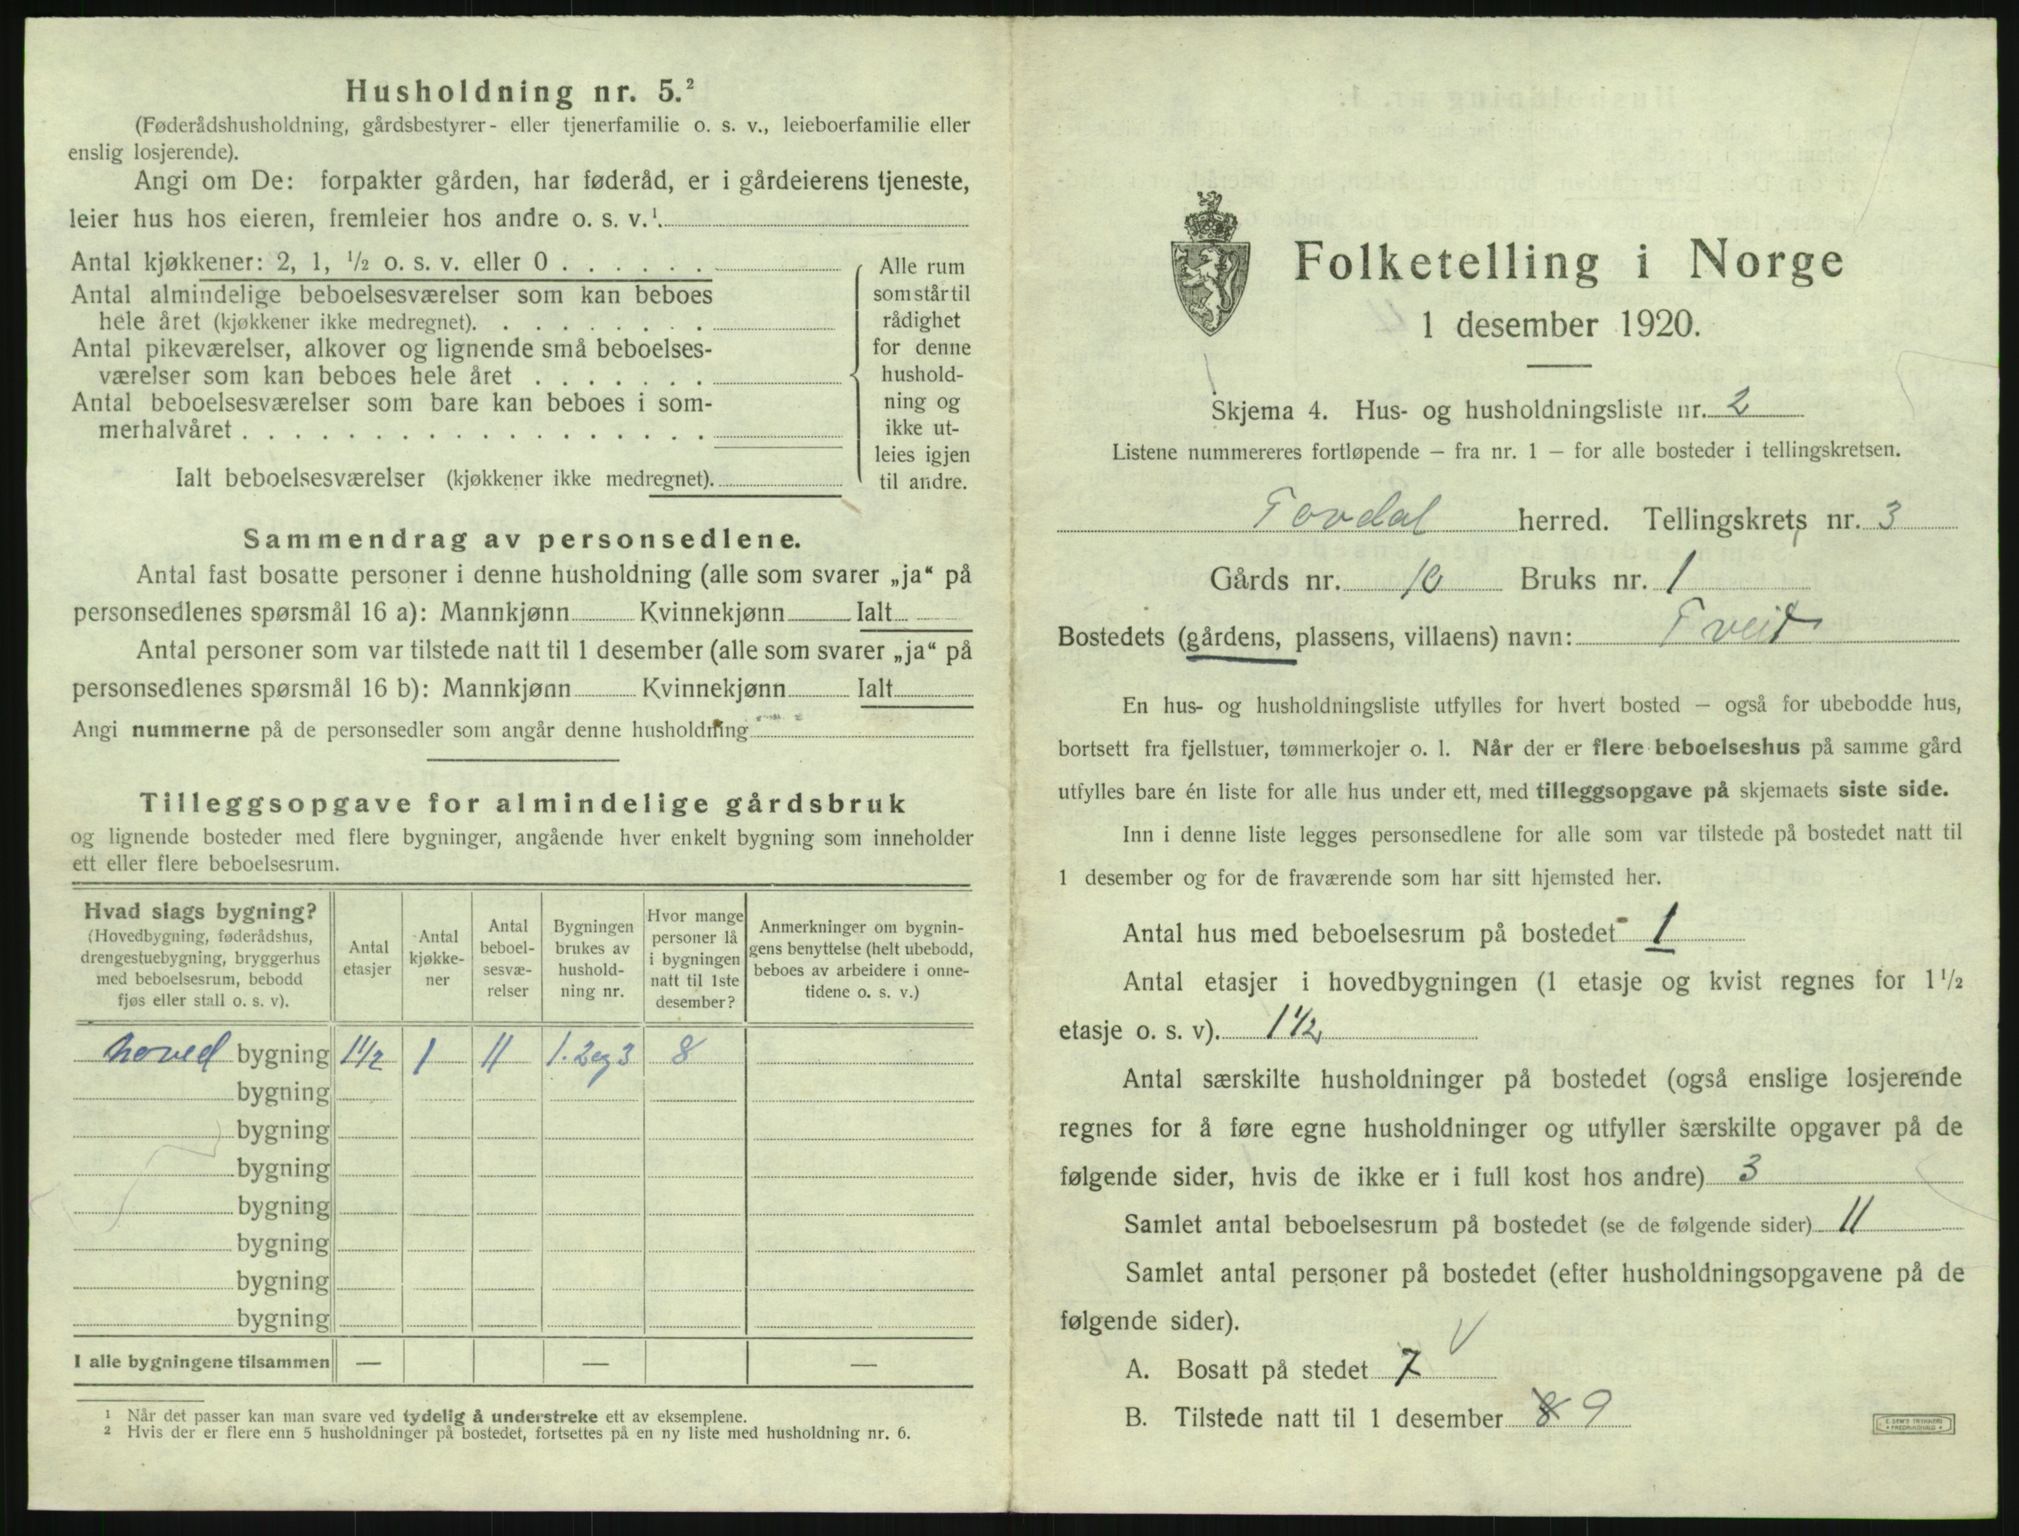 Husholdning nr. 5.²
(Føderådshusholdning, gårdsbestyrer- eller tjenerfamilie o. s. v., leieboerfamilie eller
enslig losjerende).
Angi om De: forpakter gården, har føderåd, er i gårdeierens tjeneste,
leier hus hos eieren, fremleier hos andre o. s. v.¹.
Antal kjøkkener: 2, 1, ½ o. s. v. eller 0 . . . . . .
Antal almindelige beboelsesværelser som kan beboes
hele året (kjøkkener ikke medregnet). . . . . . . . .
Antal pikeværelser, alkover og lignende små beboelses-
værelser som kan beboes hele året . . . . . . .
Antal beboelsesværelser som bare kan beboes i som-
merhalvåret . . . . . . . . . . . . . . . . . .
Ialt beboelsesværelser (kjøkkener ikke medregnet).
Alle rum
som står til
rådighet
for denne
hushold-
ning og
ikke ut-
leies igjen
til andre.
Sammendrag av personsedlene.
Antal fast bosatte personer i denne husholdning (alle som svarer „ja“ på
personsedlenes spørsmål 16 a): Mannkjønn Kvinnekjønn Ialt
Antal personer som var tilstede natt til 1 desember (alle som svarer „ja“ på
personsedlenes spørsmål 16 b): Mannkjønn Kvinnekjønn Ialt
Angi nummerne på de personsedler som angår denne husholdning
Tilleggsopgave for almindelige gårdsbruk
og lignende bosteder med flere bygninger, angående hver enkelt bygning som inneholder
ett eller flere beboelsesrum.
Hvad slags bygning?
(Hovedbygning, føderådshus,
drengestuebygning, bryggerhus
med beboelsesrum, bebodd
fjøs eller stall o. s. v).
Antal
etasjer
Antal
kjøkke-
ner
Antal
beboel-
sesvæ-
relser
Bygningen
brukes av
hushold-
ning nr.
Hvor mange
personer lå
i bygningen
natt til 1ste
desember?
Anmerkninger om bygnin-
gens benyttelse (helt ubebodd,
beboes av arbeidere i onne-
tidene o. s. v.)
hoved bygning 1½ 1 11 1. 2 og 3 8
bygning
bygning
bygning
bygning
bygning
bygning
bygning
I alle bygningene tilsammen — — —
¹ Når det passer kan man svare ved tydelig å understreke ett av eksemplene.
² Hvis der er flere enn 5 husholdninger på bostedet, fortsettes på en ny liste med husholdning nr. 6.
Folketelling i Norge
1 desember 1920.
Skjema 4. Hus- og husholdningsliste nr. 2
Listene nummereres fortløpende – fra nr. 1 – for alle bosteder i tellingskretsen.
Tovdal herred. Tellingskrets nr. 3
Gårds nr. 10 Bruks nr. 1
Bostedets (gårdens, plassens, villaens) navn: Tveit
En hus- og husholdningsliste utfylles for hvert bosted – også for ubebodde hus,
bortsett fra fjellstuer, tømmerkojer o. l. Når der er flere beboelseshus på samme gård
utfylles bare én liste for alle hus under ett, med tilleggsopgave på skjemaets siste side.
Inn i denne liste legges personsedlene for alle som var tilstede på bostedet natt til
1 desember og for de fraværende som har sitt hjemsted her.
Antal hus med beboelsesrum på bostedet 1
Antal etasjer i hovedbygningen (1 etasje og kvist regnes for 1½
etasje o. s. v). 1½
Antal særskilte husholdninger på bostedet (også enslige losjerende
regnes for å føre egne husholdninger og utfyller særskilte opgaver på de
følgende sider, hvis de ikke er i full kost hos andre) 3
Samlet antal beboelsesrum på bostedet (se de følgende sider) 11
Samlet antal personer på bostedet (efter husholdningsopgavene på de
følgende sider).
A. Bosatt på stedet 7
B. Tilstede natt til 1 desember 8 9